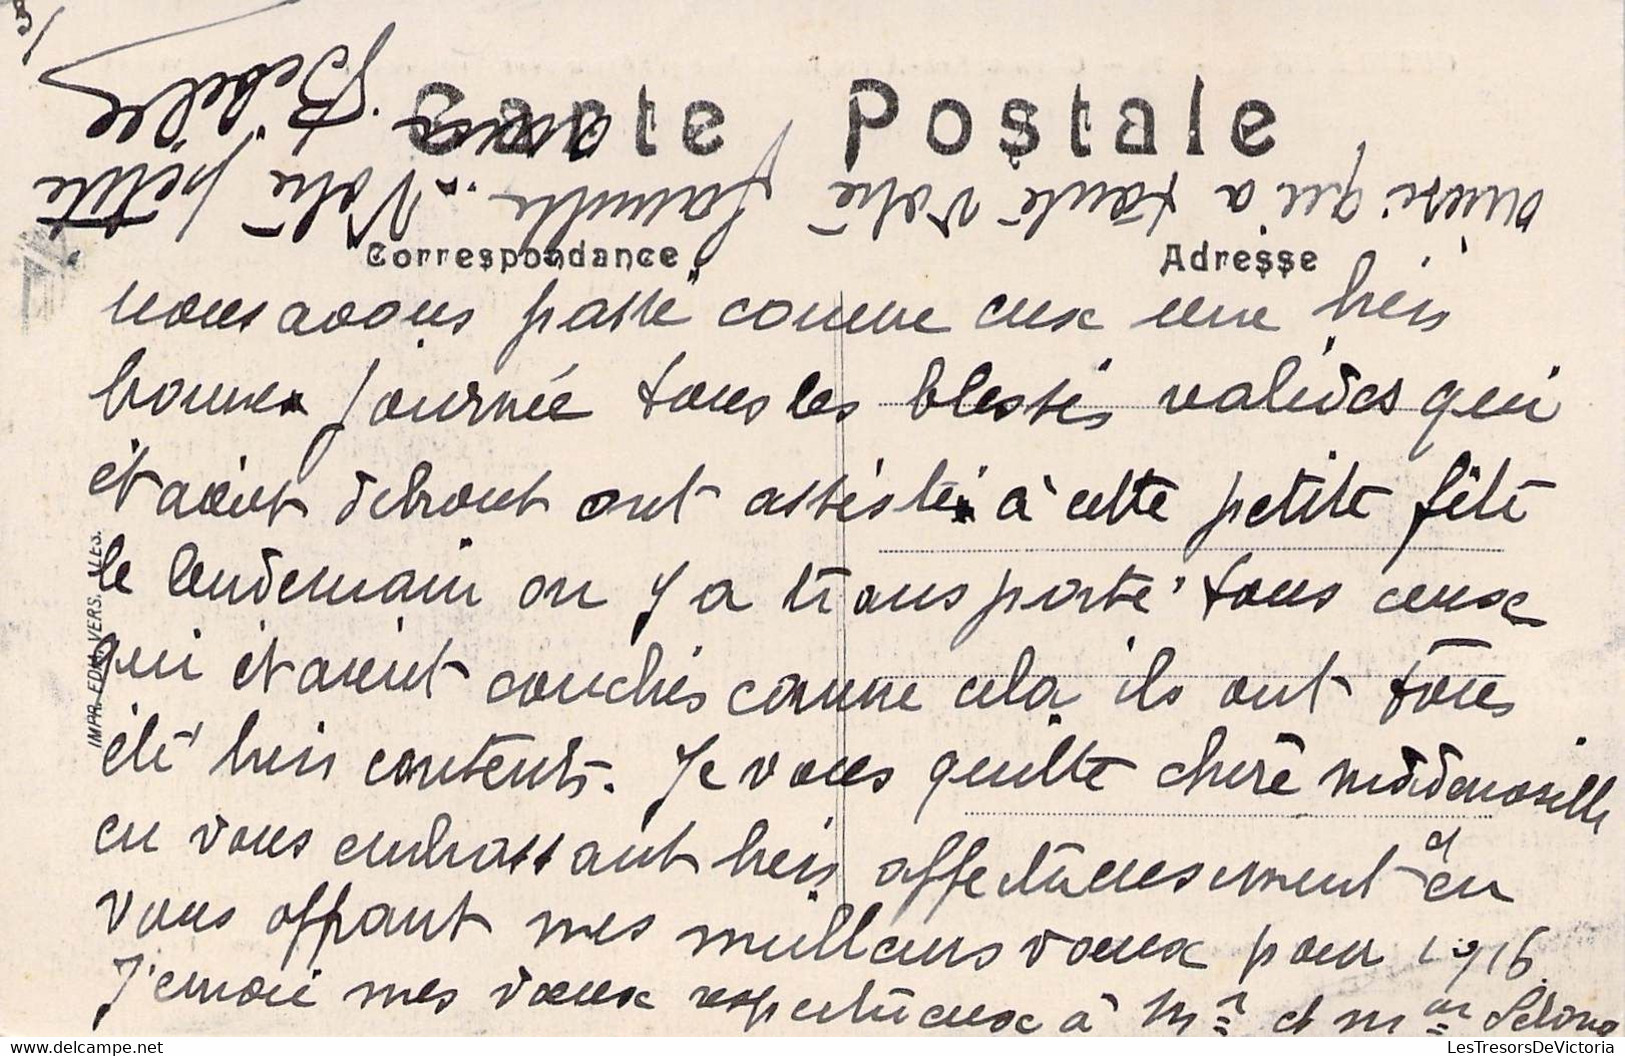 5/
Carte Postale
Correspondance
Adresse
nous avons passé comme eux une bien
bonne journée tous les blessés valides qui
étaient debout ont assisté à cette petite fête
le lendemain on y a transporté tous ceux
qui étaient couchés comme cela ils ont tous
été bien contents. Je vous quitte chère mademoiselle
en vous embrassant bien affectueusement et en
vous offrant mes meilleurs voeux pour 1916.
J'envoie mes voeux respectueux à Mr et Mme
ainsi qu'a toute votre famille. Votre petite
amie Bibelle
IMPR. EDIA. VERS.LLES.
LesTresorsDeVictoria.com
LesTresorsDeVictoria